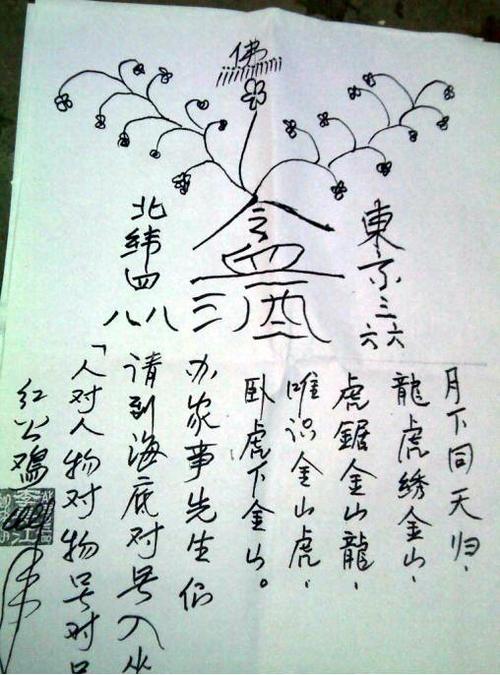 佛
東京三六六
北緯四八八
月下同天归，
龍虎绣金山，
虎鋸金山龍，
唯识金山虎，
卧虎下金山。
办家事先生们
请到海底对号入坐
「人对人物对物号对
红公鸡